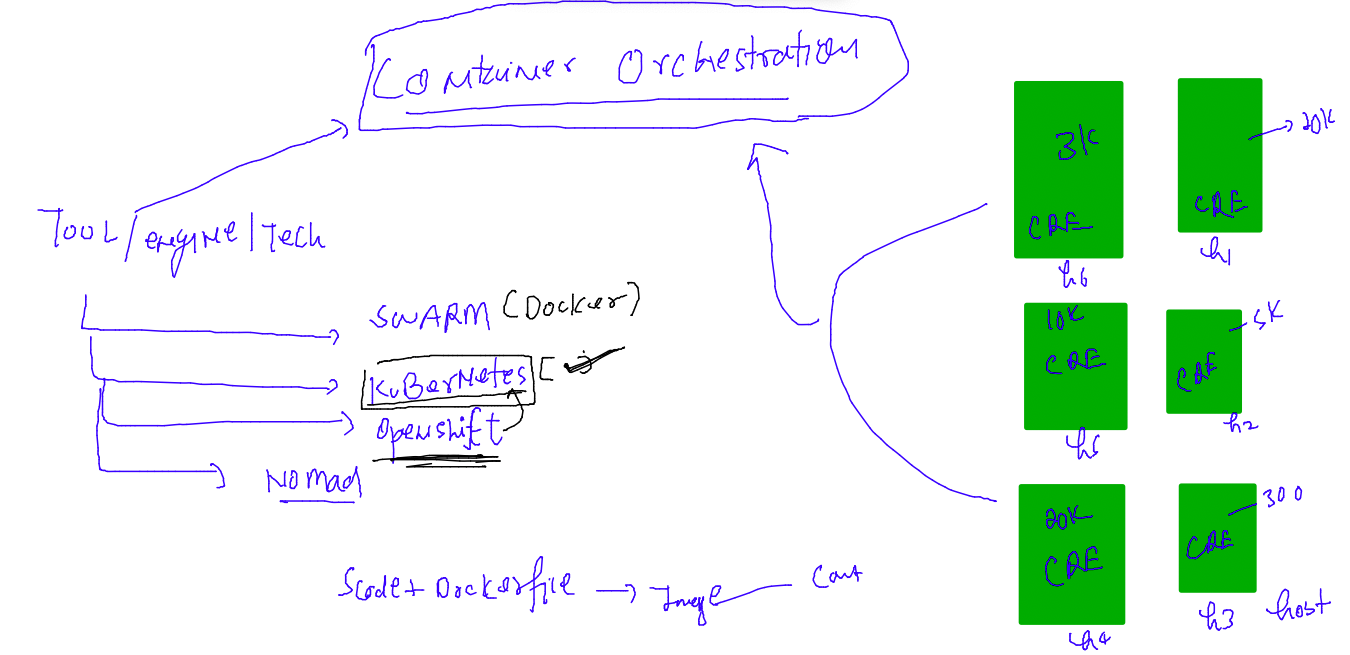 Container Orchestration
TOOL/engine/Tech
SWARM (Docker)
KuBerNetes [
Openshift
NOMad
Scode+ Dockerfile → Image — Cont
3K
CRE
h6
20K
CRE
h1
10K
CRE
h5
5K
CRE
h2
20K
CRE
h4
300
CRE
h3 host